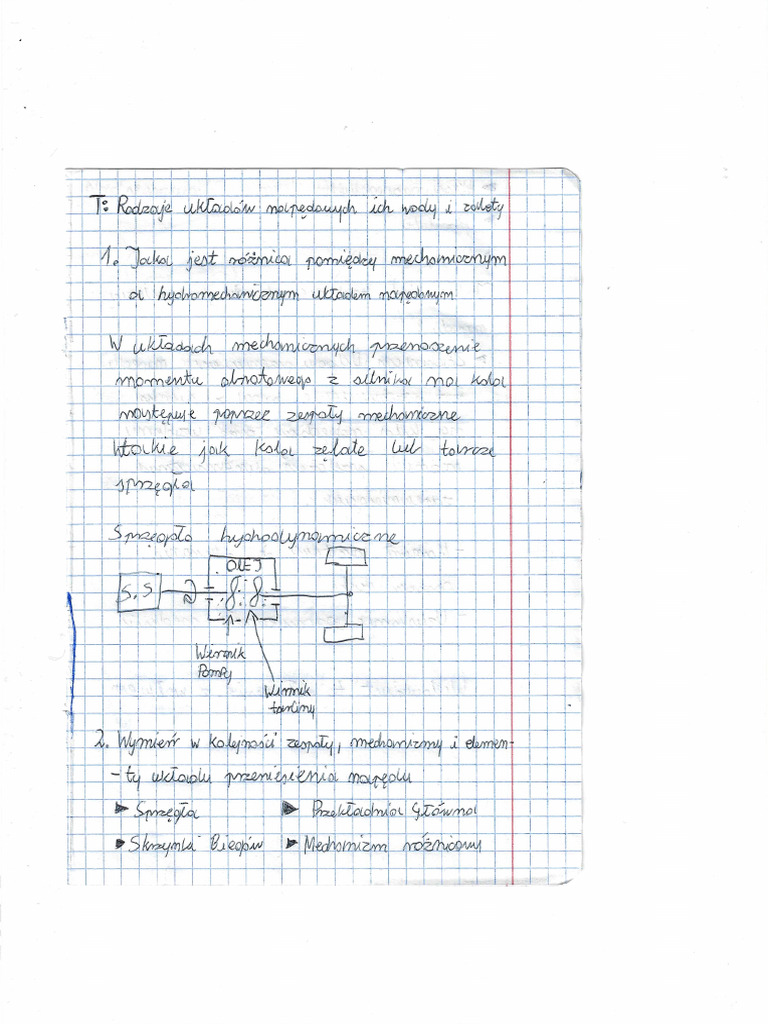 T: Rodzaje układów napędowych ich wady i zalety
1. Jaka jest różnica pomiędzy mechanicznym
a hydromechanicznym układem napędnym
W układach mechanicznych przenoszenie
momentu obrotowego z silnika na koła
następuje poprzez zespoły mechaniczne
takie jak koła zębate lub tarcze
sprzęgła
Sprzęgło hydrodynamiczne
OLEJ
S.S
Wirnik
Pompy
Wirnik
turbiny
2. Wymień w kolejności zespoły, mechanizmy i elemen-
-ty układu przeniesienia napędu
➤ Sprzęgła ➤ Przekładnia Główna
➤ Skrzynia Biegów ➤ Mechanizm różnicowy